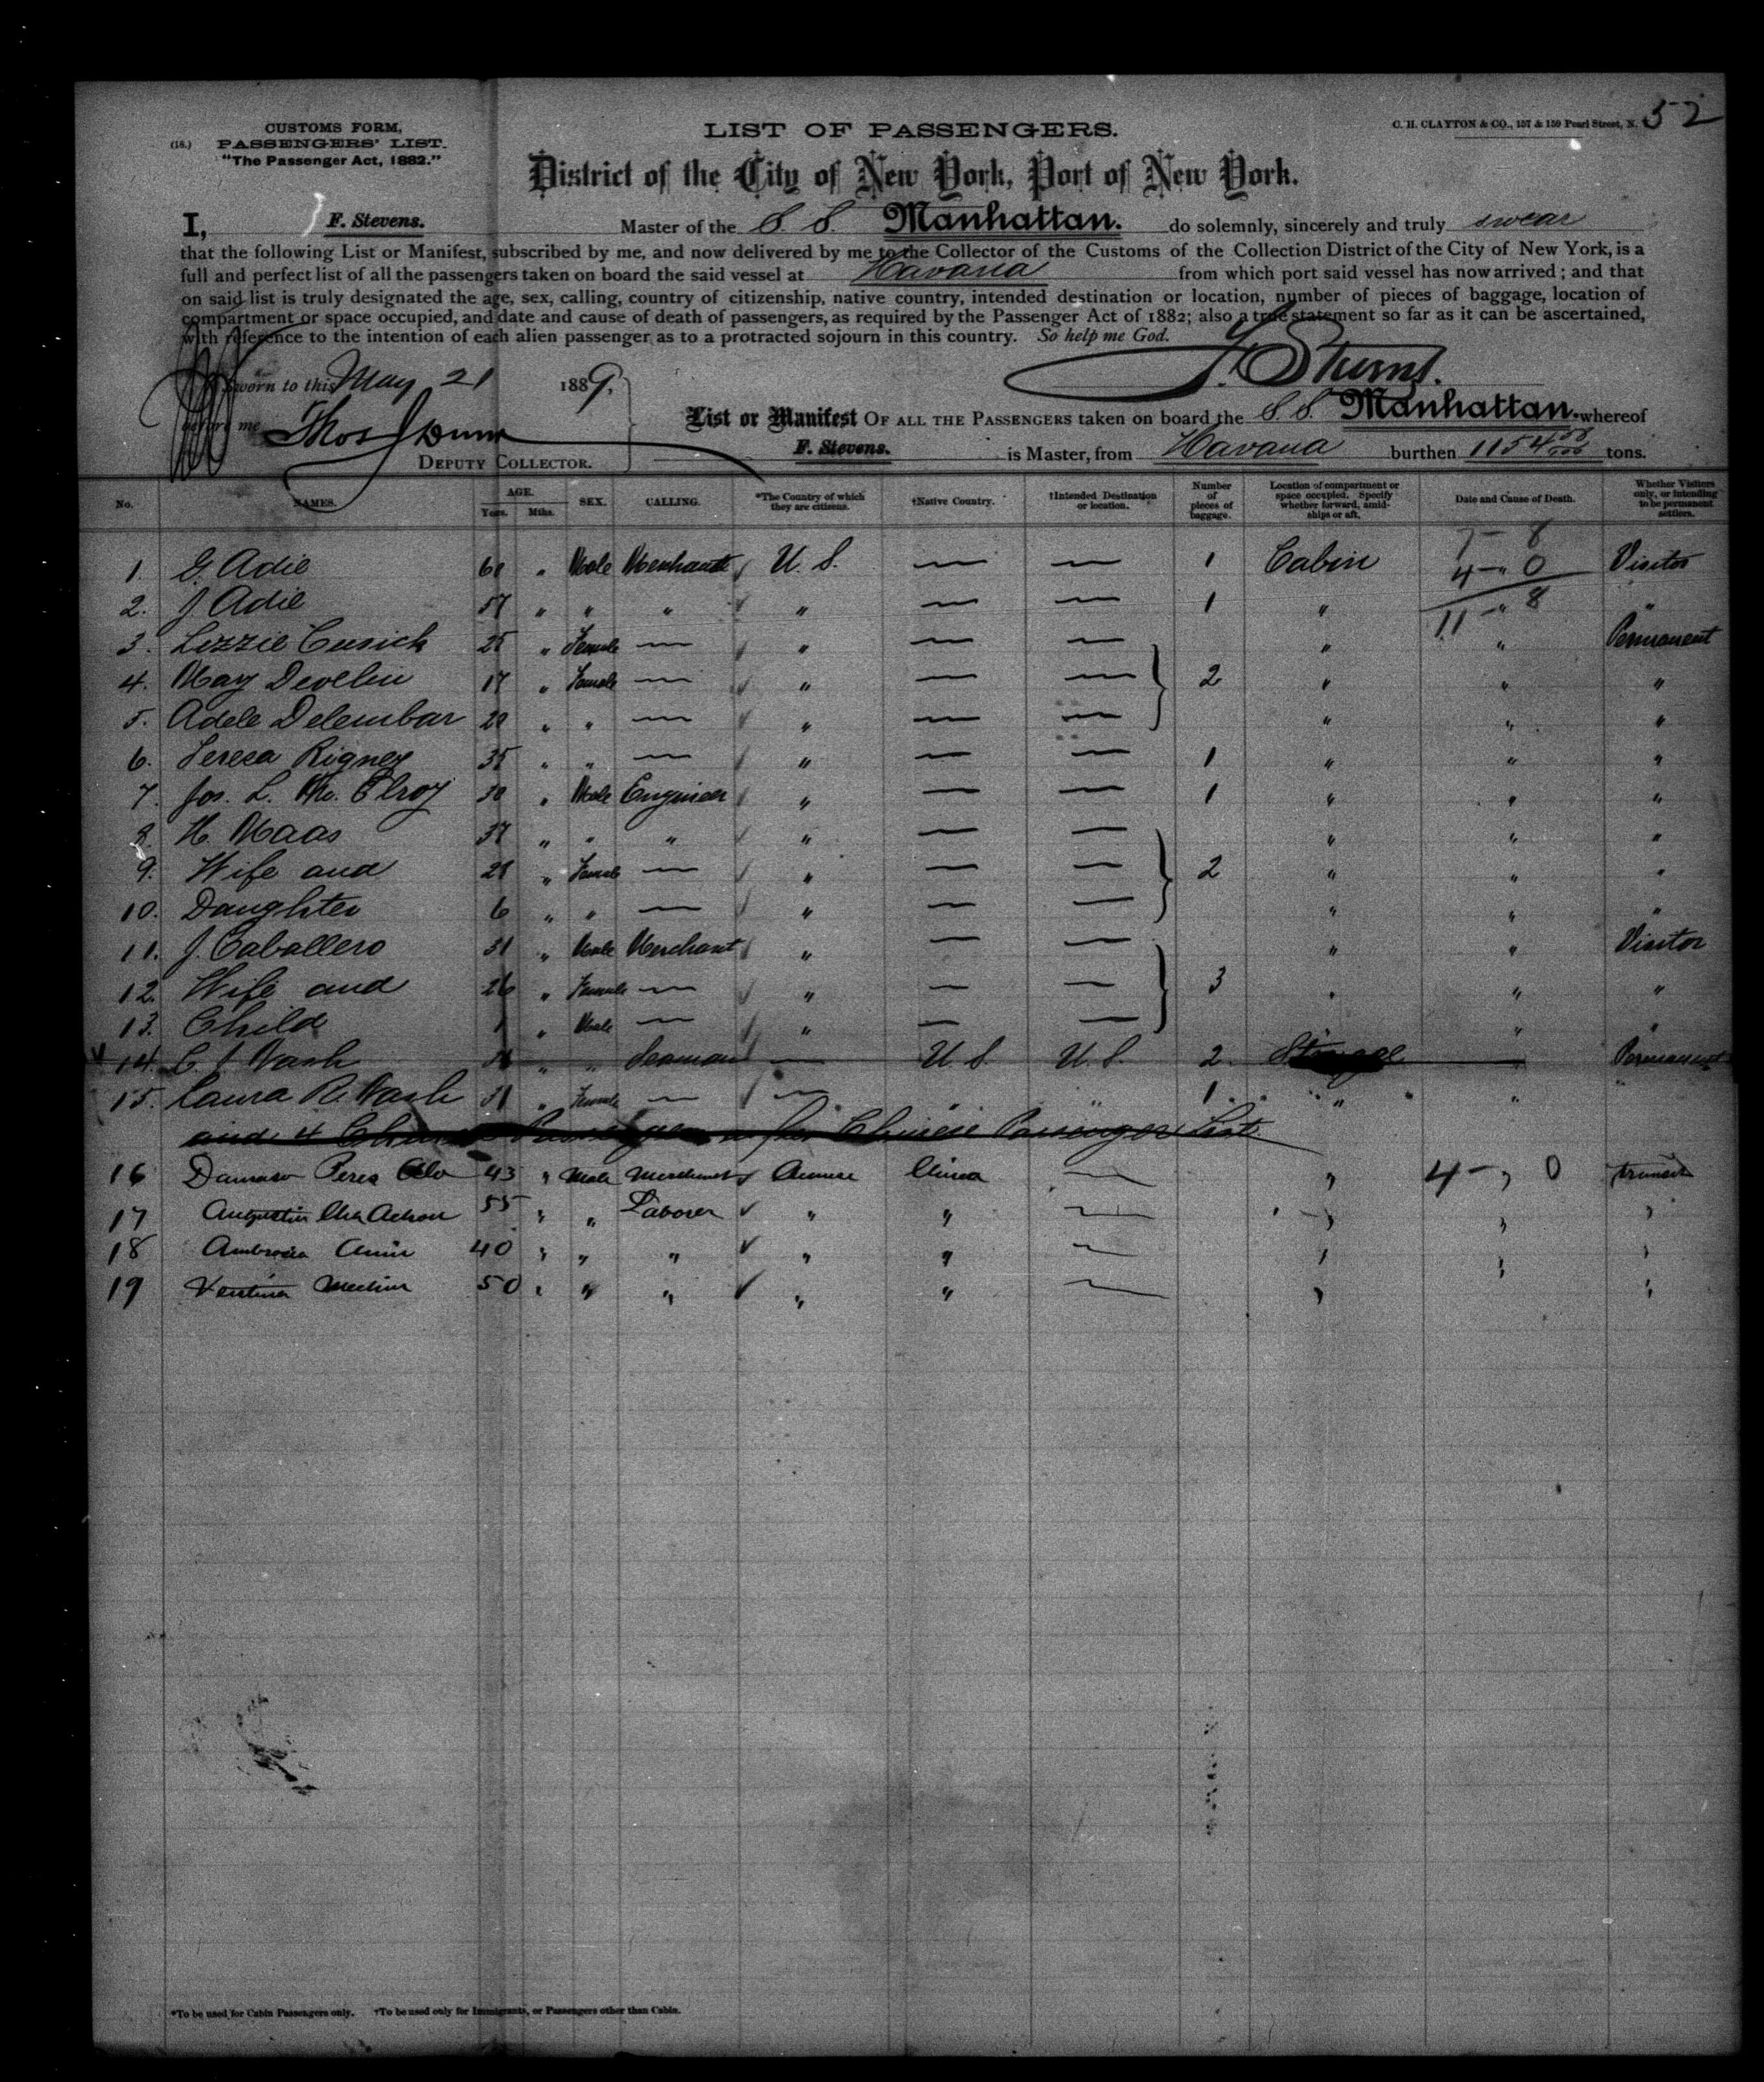 52
CUSTOMS FORM,
(18.) PASSENGERS' LIST.
"The Passenger Act, 1882."
LIST OF PASSENGERS.
C. H. CLAYTON & CO., 157 & 159 Pearl Street, N.
District of the City of New York, Port of New York.
I, F. Stevens. Master of the S. S. Manhattan. do solemnly, sincerely and truly swear
that the following List or Manifest, subscribed by me, and now delivered by me to the Collector of the Customs of the Collection District of the City of New York, is a
full and perfect list of all the passengers taken on board the said vessel at Havana from which port said vessel has now arrived; and that
on said list is truly designated the age, sex, calling, country of citizenship, native country, intended destination or location, number of pieces of baggage, location of
compartment or space occupied, and date and cause of death of passengers, as required by the Passenger Act of 1882; also a true statement so far as it can be ascertained,
with reference to the intention of each alien passenger as to a protracted sojourn in this country. So help me God.
F. Stevens.
Sworn to this May 21 1889,
before me Thos J Dunn
DEPUTY COLLECTOR.
List or Manifest OF ALL THE PASSENGERS taken on board the S. S. Manhattan. whereof
F. Stevens. is Master, from Havana burthen 1154 58/100 tons.
No. NAMES. AGE. Years. Mths. SEX. CALLING. *The Country of which they are citizens. †Native Country. †Intended Destination or location. Number of pieces of baggage. Location of compartment or space occupied. Specify whether forward, amidships or aft. Date and Cause of Death. Whether Visitors only, or intending to be permanent settlers.
7 - 8
1. G. Adie 60 " Male Merchant U. S. — — 1 Cabin 4 - 0 Visitor
2. J. Adie 57 " " " " — — 1 " 11 - 8 "
3. Lizzie Cusick 25 " Female — " — — " " Permanent
4. May Develin 17 " Female — " — — 2 " " "
5. Adele Delembar 20 " " — " — — " " "
6. Teresa Rigney 35 " " — " — — 1 " " "
7. Jos. L. Mc. Elroy 30 " Male Engineer " — — 1 " " "
8. H. Maas 37 " " " " — — " " "
9. Wife and 28 " Female — " — — 2 " " "
10. Daughter 6 " " — " — — " " "
11. J. Caballero 31 " Male Merchant " — — " " Visitor
12. Wife and 26 " Female — " — — 3 " " "
13. Child 1 " Male — " — — " "
14. C. J. Nash " " Seaman — U. S. U. S. 2 Steerage — Permanent
15. Laura R. Nash 31 " Female — — " " 1 " "
and 4 Chinese Passengers as per Chinese Passenger List
16 Damaso Perez 43 " Male Merchant Chinese China — " 4 - 0 transit
17 Augustin Cha Achon 55 " " Laborer " " — " " "
18 Ambrosia 40 " " " " " — " " "
19 50 " " " " " — " "
*To be used for Cabin Passengers only. †To be used only for Immigrants, or Passengers other than Cabin.